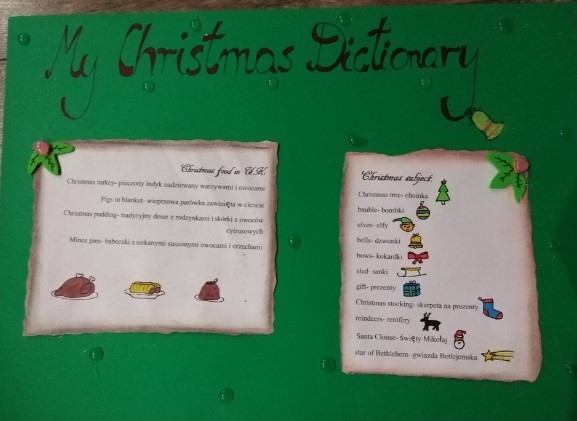 My Christmas Dictionary
Christmas food in U.K.
Christmas turkey- pieczony indyk nadziewany warzywami i owocami
Pigs in blanket- wieprzowa parówka zawinięta w cieście
Christmas pudding- tradycyjny deser z rodzynkami i skórki z owoców
cytrusowych
Mince pies- babeczki z siekanymi suszonymi owocami i orzechami
Christmas subject:
Christmas tree- choinka
bauble- bombki
elves- elfy
bells- dzwonki
bows- kokardki
sled- sanki
gift- prezenty
Christmas stocking- skarpeta na prezenty
reindeers- renifery
Santa Clouse- święty Mikołaj
star of Bethlehem- gwiazda Betlejemska